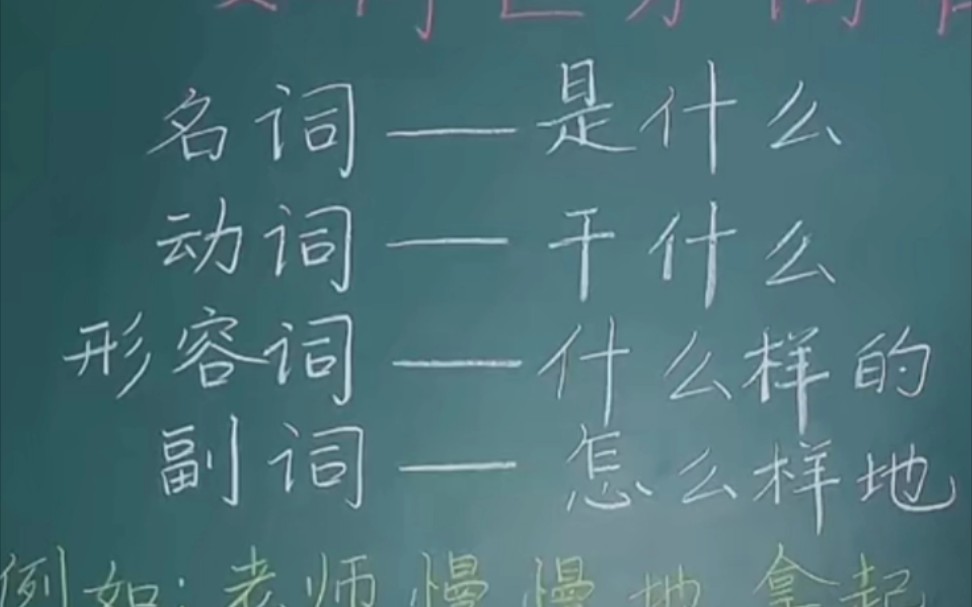 名词——是什么
动词——干什么
形容词——什么样的
副词——怎么样地
例如:老师慢慢地拿起